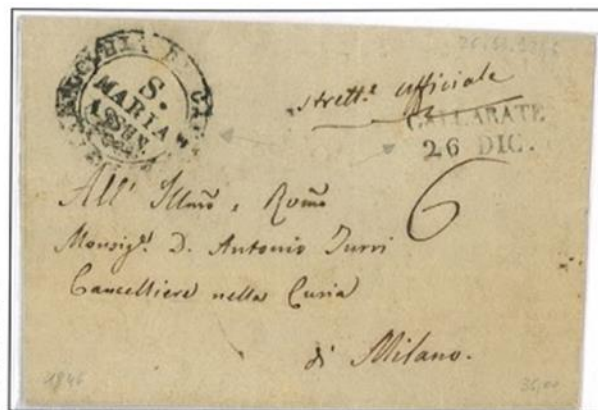 S.
MARIA
ASSUN.
strett.e ufficiale
GALLARATE
26 DIC.
6
All' Illmo e Revmo
Monsigr. D. Antonio Turri
Cancelliere nella Curia
di Milano.
1846
35,00